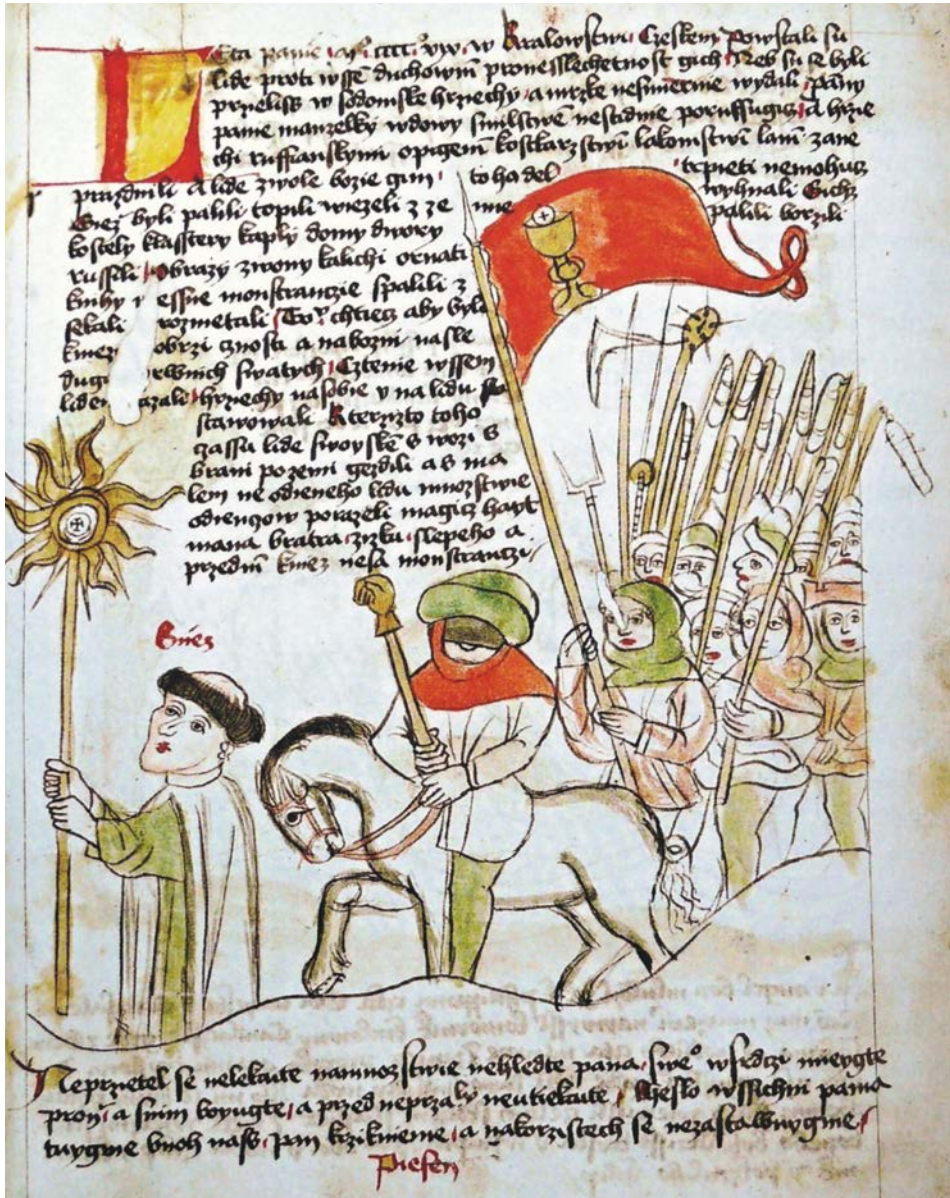 Leta panie
w Kralowstwi Czeskem Powstali su
lide proti wsse duchowni pro nesslechetnost gich Neb su se byli
w sodomske hrziechy a mrzke nesmiernie wydali Pany
panie manzelky wdowy smilstwem nestidmie A hrzie
chi ruffianskymi opigenim kostkarzstwi lakomstwi lani zane
prazdnili A lide z wole bozie gim toho del trpieti nemohucz
wyhnali
byli palili topili wiezeli z ze mie palili borzili
kostely klasstery kaply domy dwory
russili obrazy zwony kalichi ornati
knihy monstrancie spalili z
sekali rozmetali chtiecz aby byli
kniez a nabozni nasle
swatych Cztenie wssem
hrziechy na sobie y na lidu
stawowali Kterizto toho
czassu lide swoyske s wozi s
brani po zemi gezdili a s ma
lem ne odieneho lidu mnozstwie
odiencow porazeli magicz hayt
mana bratra zizku slepeho a
przedni kniez nesa monstranczi
kniez
Neprzatel se nelekaite na mnozstwie nehledte pana sweo w srdczi mieygte
pron a s nim boyugte a przed neprzaly neutiekaite Heslo wssichni pama
tuygme pan krziknieme a na korzistech se nezastawuygme
Piesen